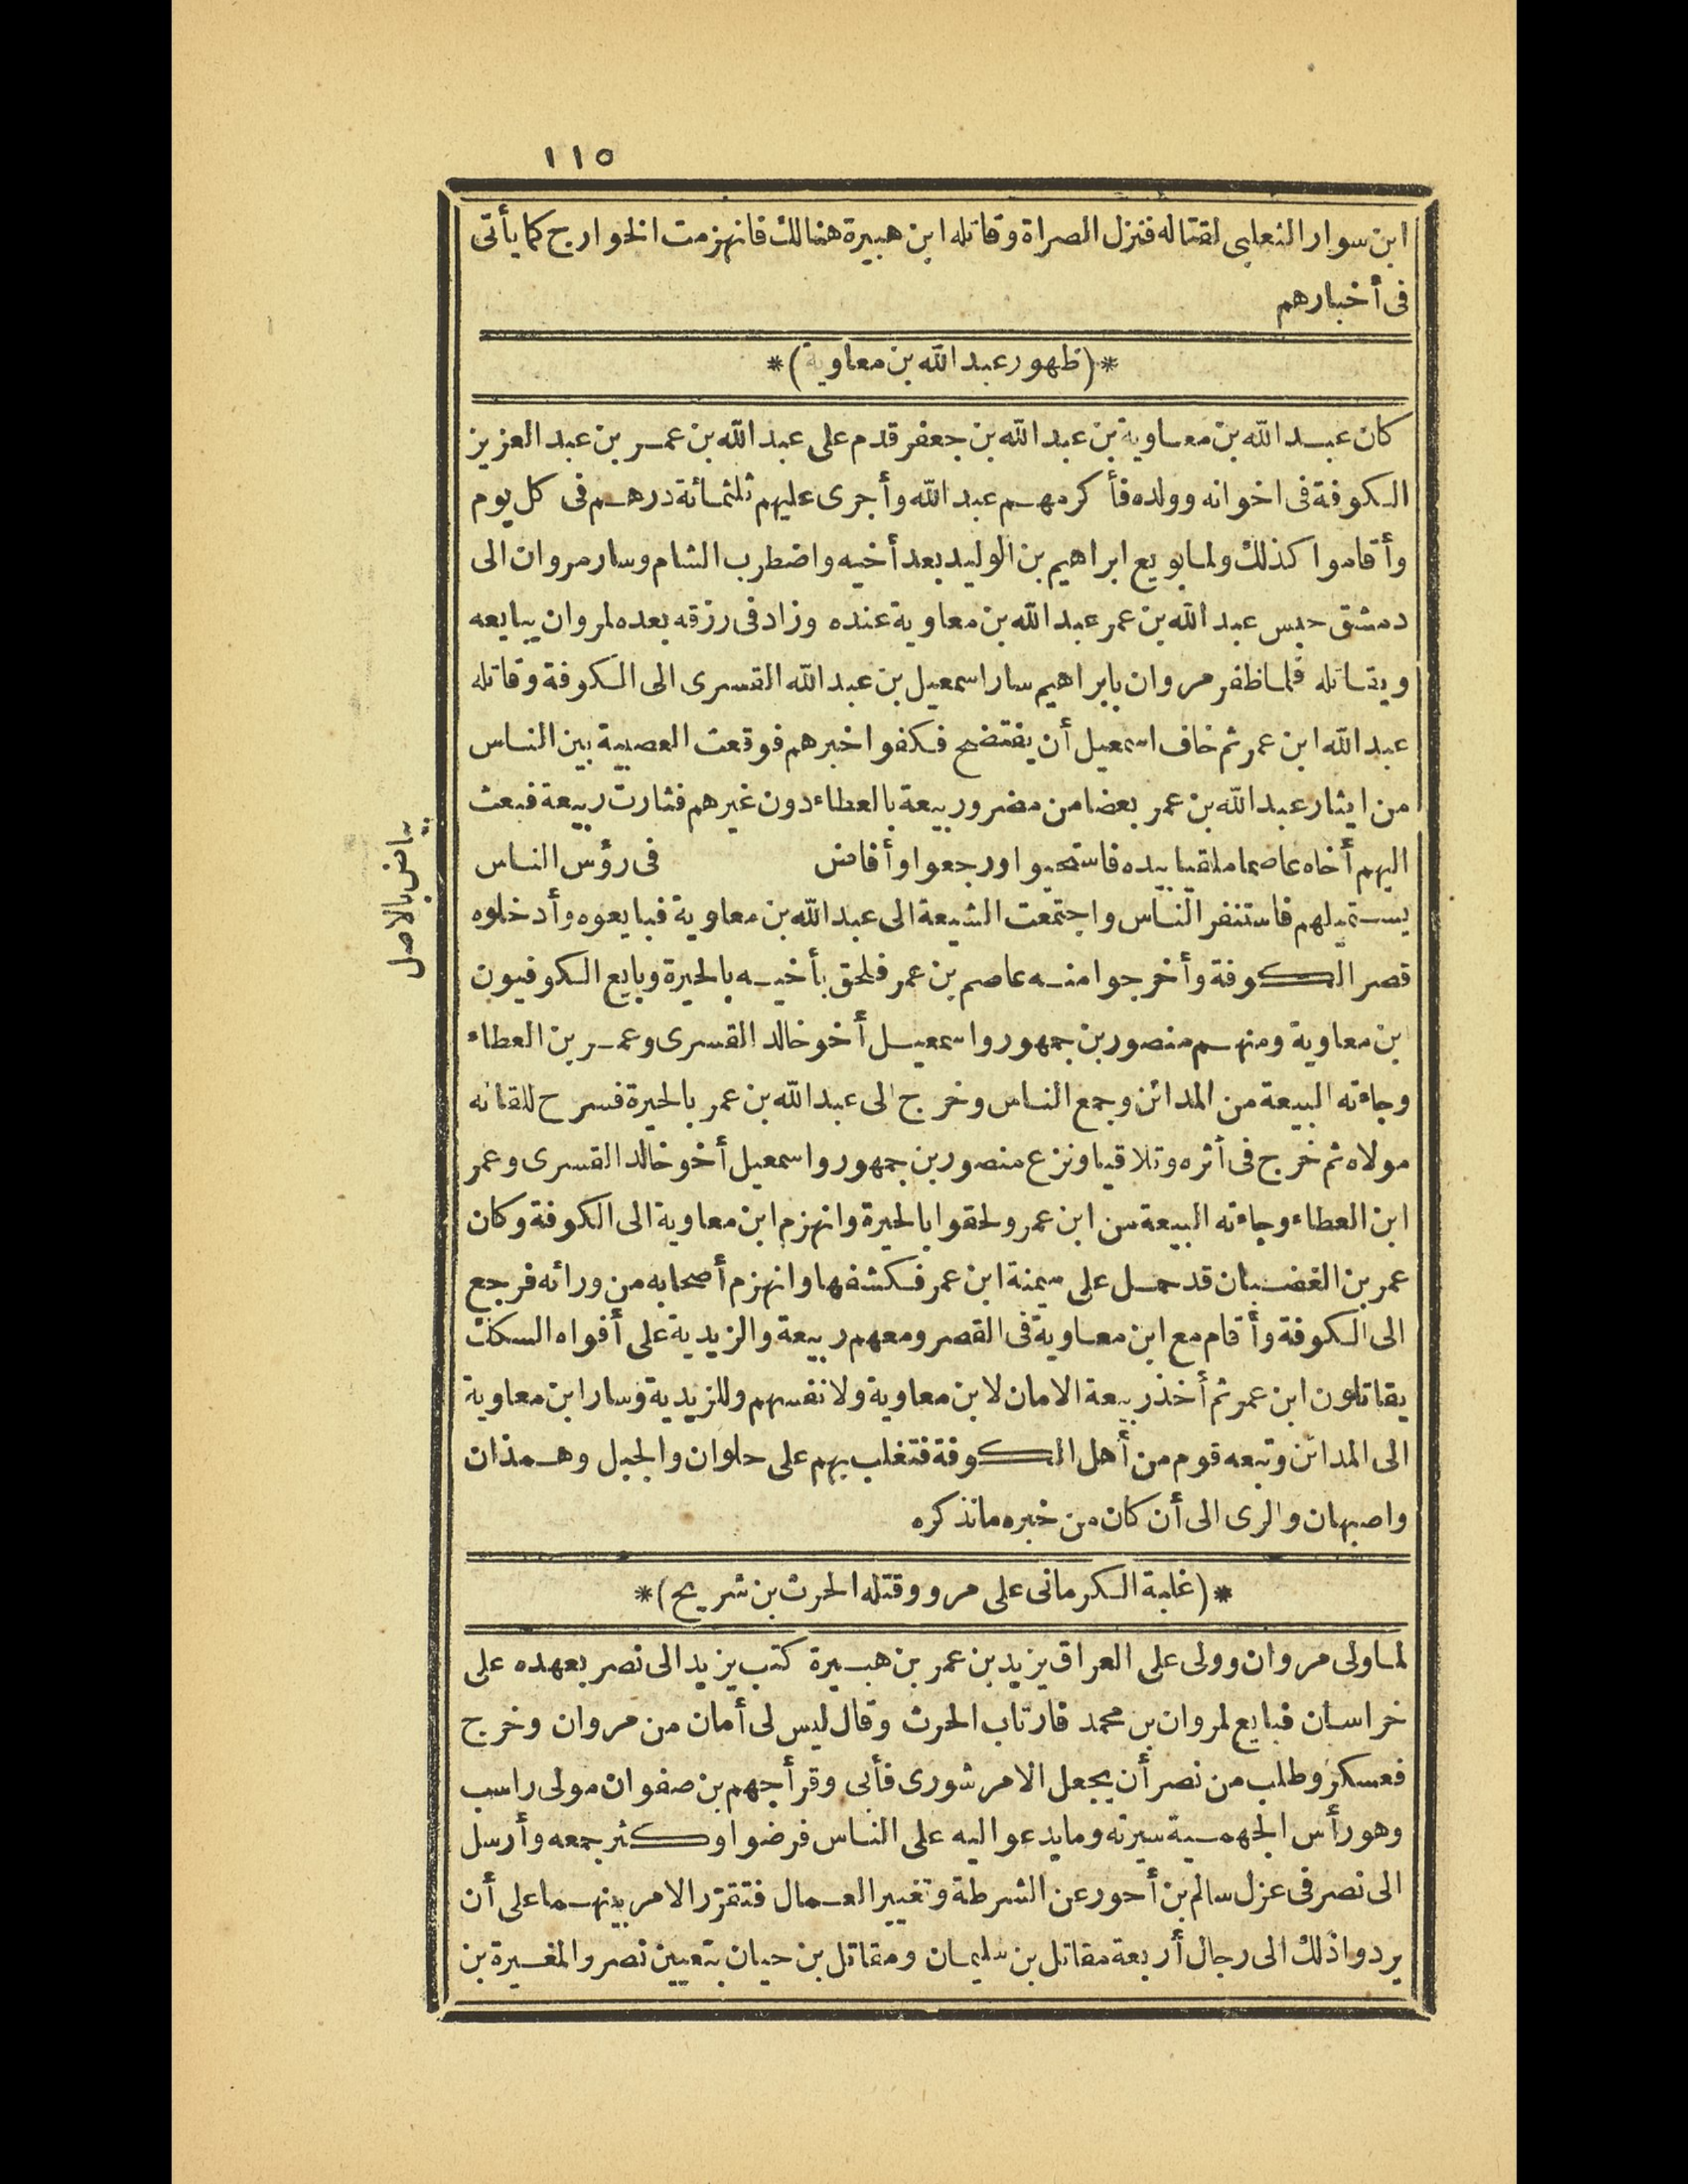 ١١٥
ابن سوار التغلبى لقتاله فنزل الصراة وقاتله ابن هبيرة هنالك فانهزمت الخوارج كما يأتى
فى أخبارهم
*(ظهور عبد الله بن معاوية)*
كان عبد الله بن معاوية بن عبد الله بن جعفر قدم على عبد الله بن عمر بن عبد العزيز
الكوفة فى اخوانه وولده فأكرمهم عبد الله وأجرى عليهم ثلثمائة درهم فى كل يوم
وأقاموا كذلك ولما بويع ابراهيم بن الوليد بعد أخيه واضطرب الشام وسار مروان الى
دمشق حبس عبد الله بن عمر عبد الله بن معاوية عنده وزاد فى رزقه بعده لمروان يبايعه
ويقاتله فلما ظفر مروان بابراهيم سار اسمعيل بن عبد الله القسرى الى الكوفة وقاتله
عبد الله ابن عمر ثم خاف اسمعيل أن يفتضح فكفوا خبرهم فوقعت العصبية بين الناس
من ايثار عبد الله بن عمر بعضا من مضر وربيعة بالعطاء دون غيرهم فثارت ربيعة فبعث
اليهم أخاه عاصما ملقيا بيده فاستحيوا ورجعوا وأفاض فى رؤس الناس
بياض بالاصل
يستميلهم فاستنفر الناس واجتمعت الشيعة الى عبد الله بن معاوية فبايعوه وأدخلوه
قصر الكوفة وأخرجوا منه عاصم بن عمر فلحق بأخيه بالحيرة وبايع الكوفيون
بن معاوية ومنهم منصور بن جمهور واسمعيل أخو خالد القسرى وعمر بن العطاء
وجاءته البيعة من المدائن وجمع الناس وخرج الى عبد الله بن عمر بالحيرة فسرح للقائه
مولاه ثم خرج فى أثره وتلاقيا ونزع منصور بن جمهور واسمعيل أخو خالد القسرى وعمر
ابن العطاء وجاءته البيعة من ابن عمر ولحقوا بالحيرة وانهزم ابن معاوية الى الكوفة وكان
عمر بن الغضبان قد حمل على ميمنة ابن عمر فكشفها وانهزم أصحابه من ورائه فرجع
الى الكوفة وأقام مع ابن معاوية فى القصر ومعهم ربيعة والزيدية على أفواه السكك
يقاتلون ابن عمر ثم أخذ ربيعة الامان لابن معاوية ولانفسهم وللزيدية وسار ابن معاوية
الى المدائن وتبعه قوم من أهل الكوفة فتغلب بهم على حلوان والجبل وهمذان
واصبهان والرى الى أن كان من خبره مانذكره
*(غلبة الكرمانى على مرو وقتله الحرث بن شريح)*
لما ولى مروان وولى على العراق يزيد بن عمر بن هبيرة كتب يزيد الى نصر بعهده على
خراسان فبايع لمروان بن محمد فارتاب الحرث وقال ليس لى أمان من مروان وخرج
فعسكر وطلب من نصر أن يجعل الامر شورى فأبى وقرأ جهم بن صفوان مولى راسب
وهو رأس الجهمية سيرته وما يدعو اليه على الناس فرضوا وكثر جمعه وأرسل
الى نصر فى عزل سالم بن أحور عن الشرطة وتغيير العمال فتقرّر الامر بينهما على أن
يردوا ذلك الى رجال أربعة مقاتل بن سليمان ومقاتل بن حيان بتعيين نصر والمغيرة بن